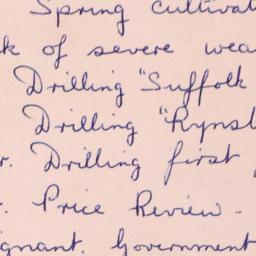 Spring cultivat
k of severe wea
Drilling "Suffolk
Drilling "Rynst
r. Drilling first
. Price Review -
gnant. Government